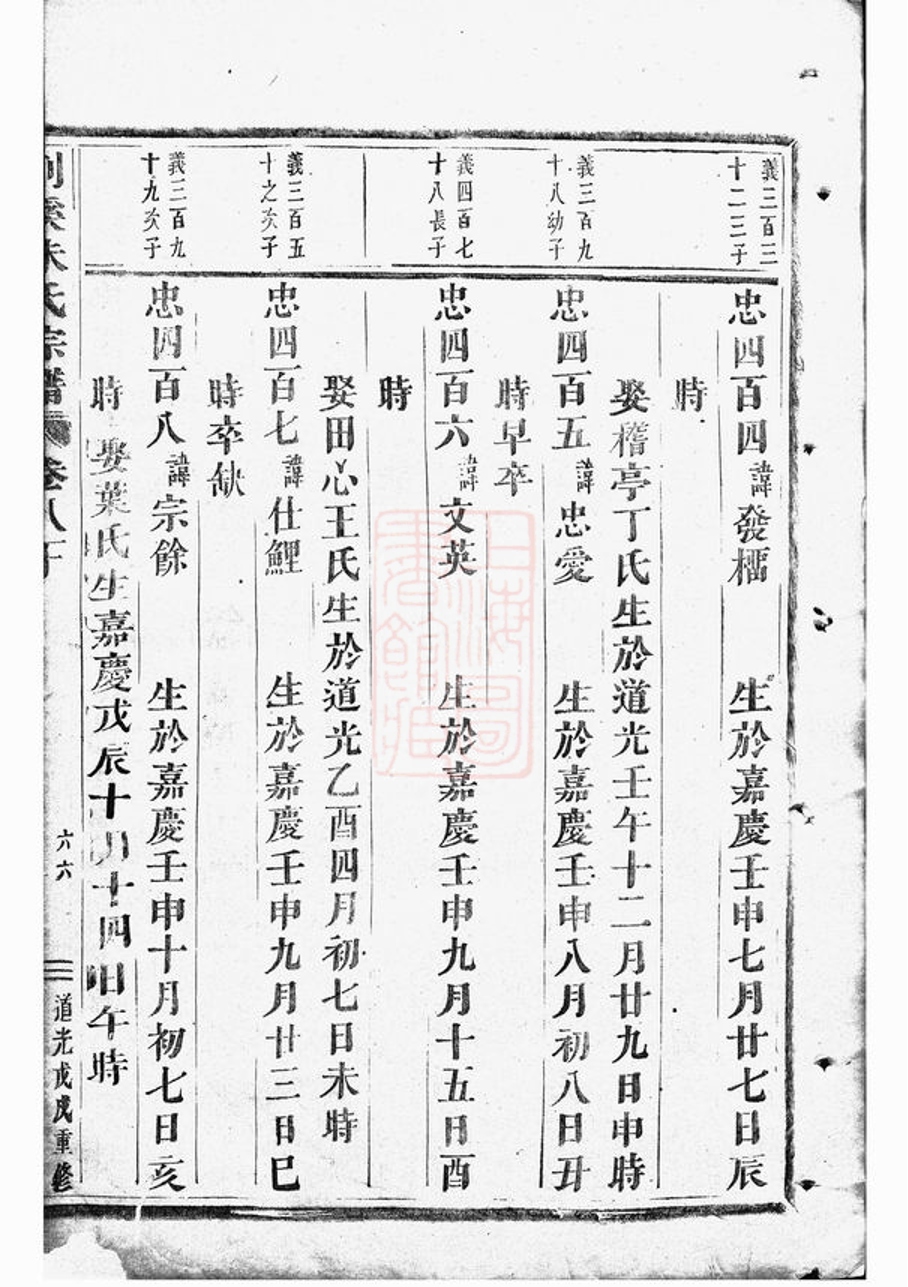 義三百三
十二三子
忠四百四諱發橊 生於嘉慶壬申七月廿七日辰
時
娶稽亭丁氏生於道光壬午十二月廿九日申時
義三百九
十八幼子
忠四百五諱忠愛 生於嘉慶壬申八月初八日丑
時早卒
義四百七
十八長子
忠四百六諱文英 生於嘉慶壬申九月十五日酉
時
娶田心王氏生於道光乙酉四月初七日未時
義三百五
十之次子
忠四百七諱仕鯉 生於嘉慶壬申九月廿三日巳
時卒缺
義三百九
十九次子
忠四百八諱宗餘 生於嘉慶壬申十月初七日亥
時 娶葉氏生嘉慶戊辰十月十四日午時
朱氏宗譜 卷八下
六六
道光戊戌重修
上海圖書館藏